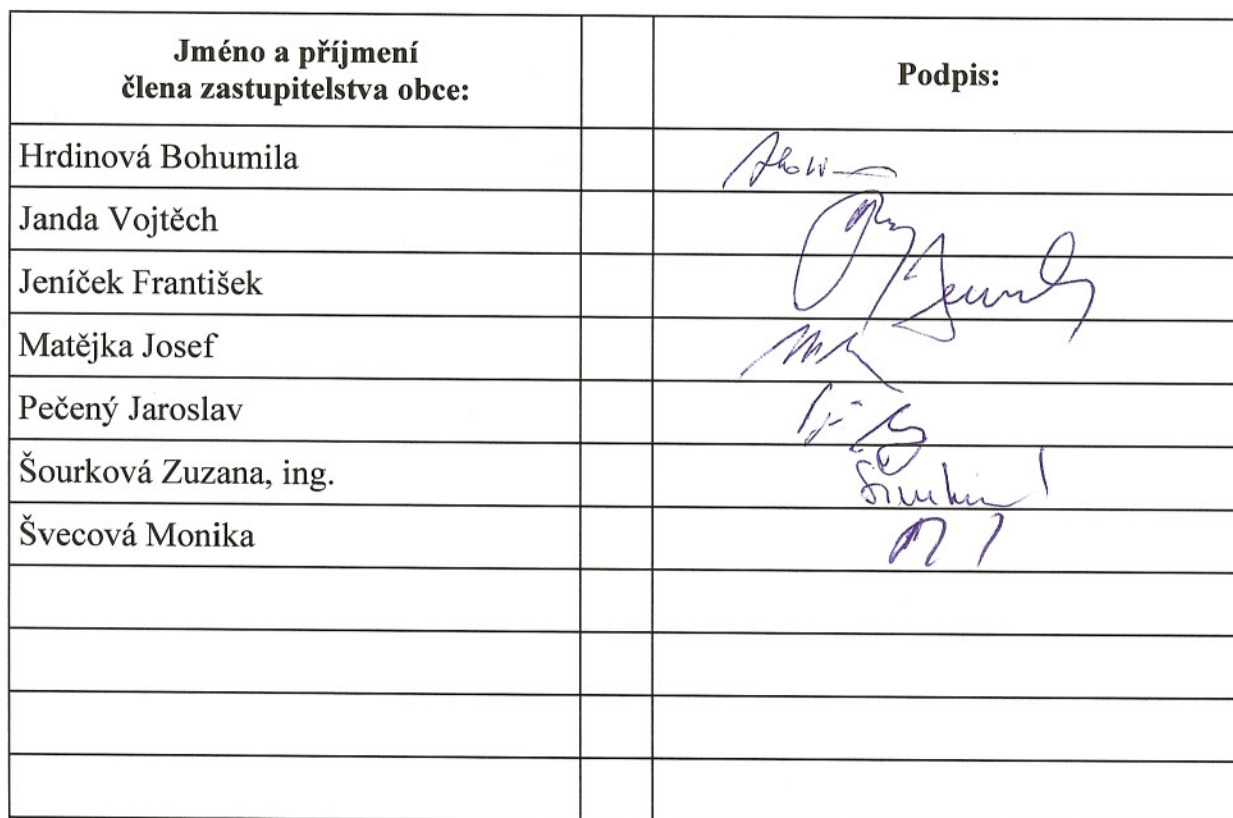 Jméno a příjmení
člena zastupitelstva obce:
Podpis:
Hrdinová Bohumila
Janda Vojtěch
Jeníček František
Matějka Josef
Pečený Jaroslav
Šourková Zuzana, ing.
Švecová Monika